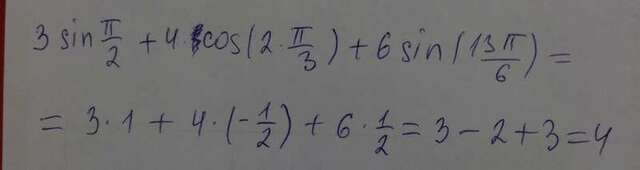 3 sin π/2 + 4·cos(2·π/3) + 6 sin(13π/6) =
= 3·1 + 4·(-1/2) + 6·1/2 = 3 - 2 + 3 = 4